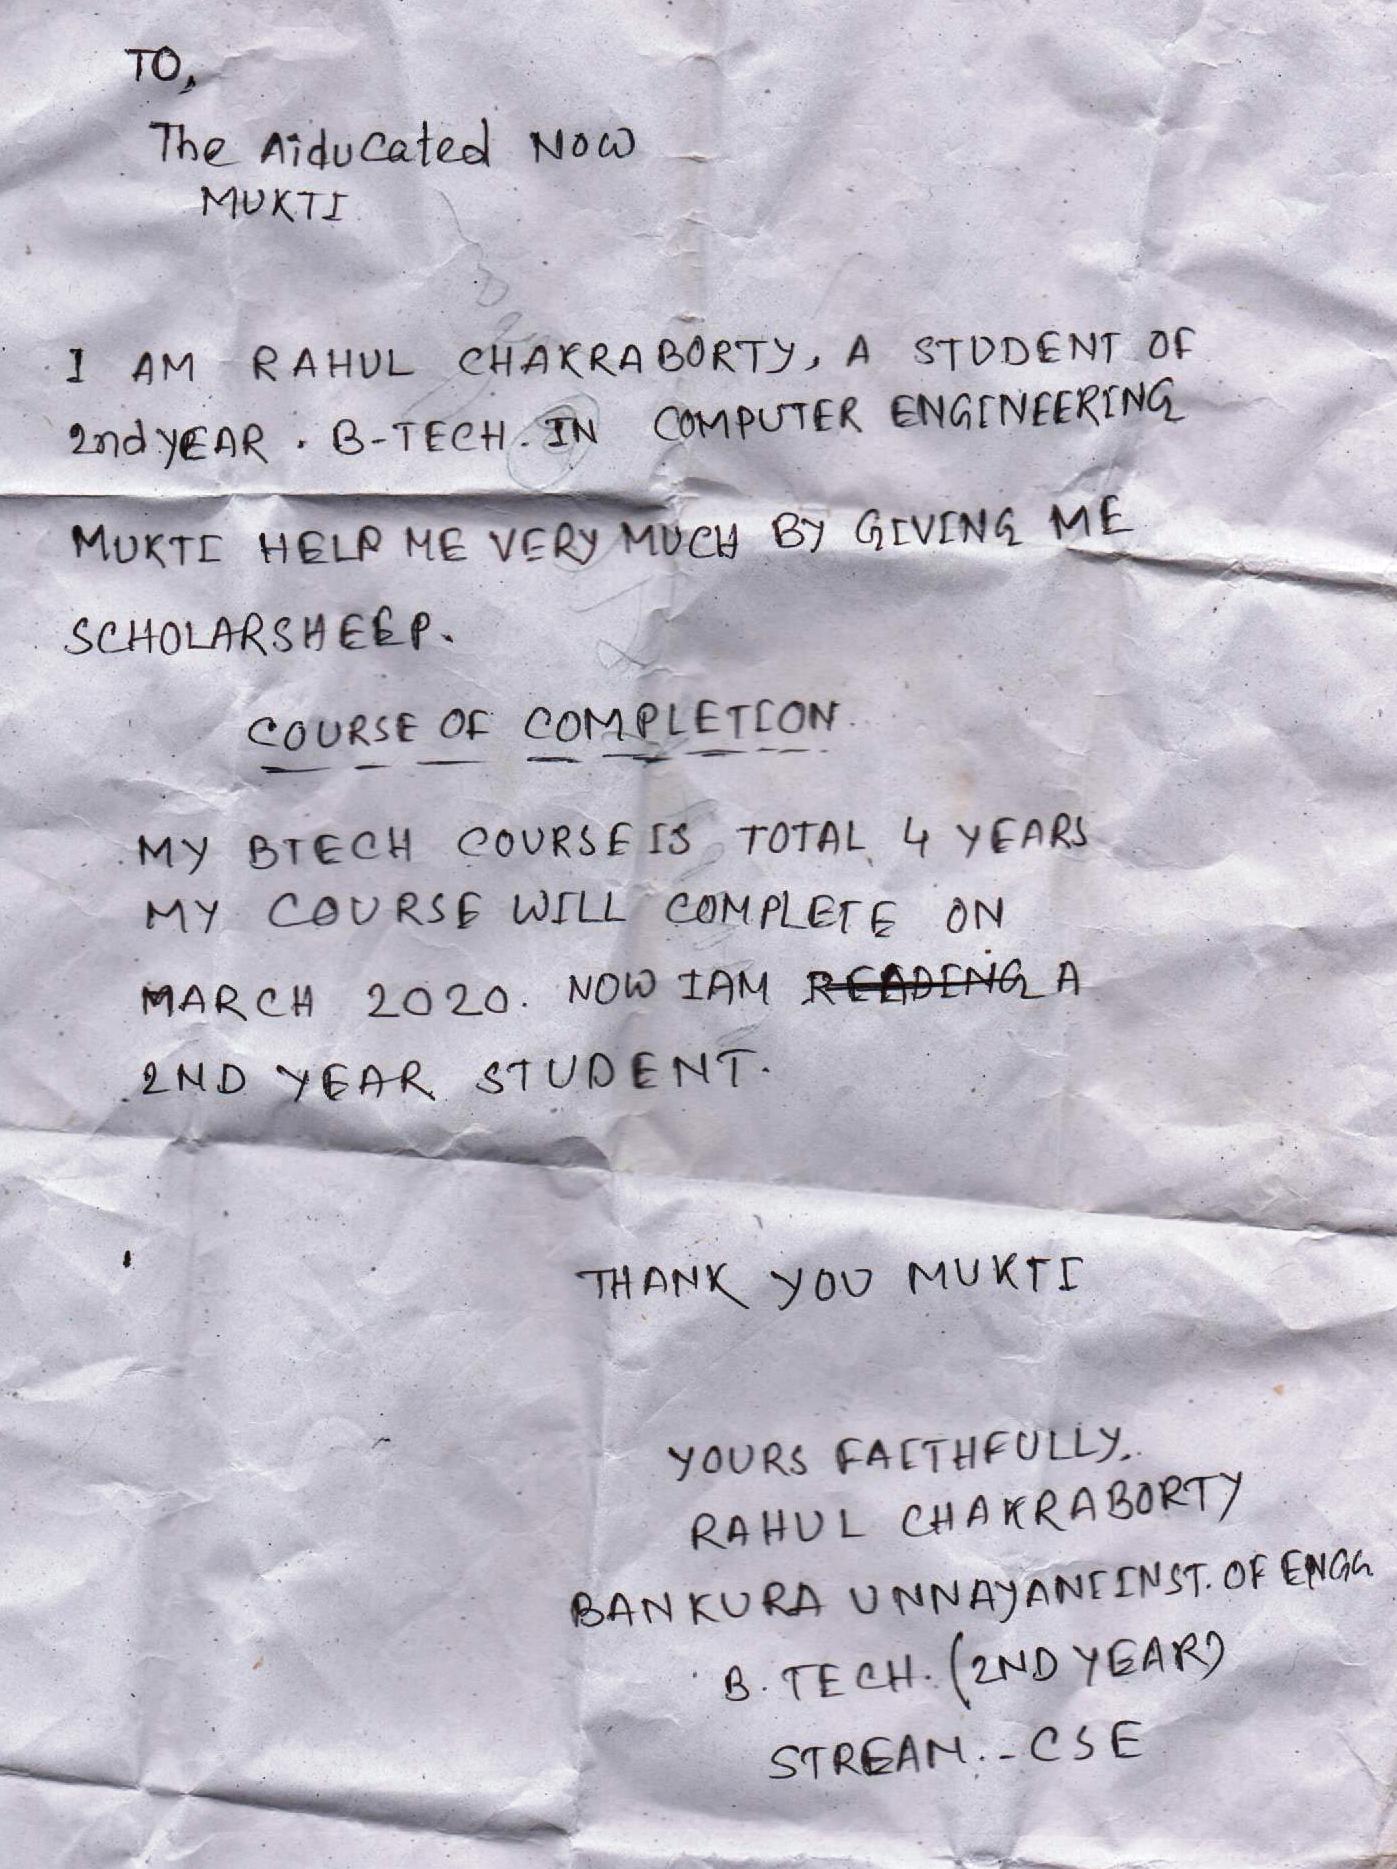 TO,
The Aiducated NOW
MUKTI
I AM RAHUL CHAKRABORTY, A STUDENT OF
2nd YEAR . B-TECH. IN COMPUTER ENGINEERING
MUKTI HELP ME VERY MUCH BY GIVING ME
SCHOLARSHEEP.
COURSE OF COMPLETION
MY BTECH COURSE IS TOTAL 4 YEARS
MY COURSE WILL COMPLETE ON
MARCH 2020. NOW I AM READING A
2ND YEAR STUDENT.
THANK YOU MUKTI
YOURS FAITHFULLY,.
RAHUL CHAKRABORTY
BANKURA UNNAYANI INST. OF ENGG
B. TECH. (2ND YEAR)
STREAM. - CSE